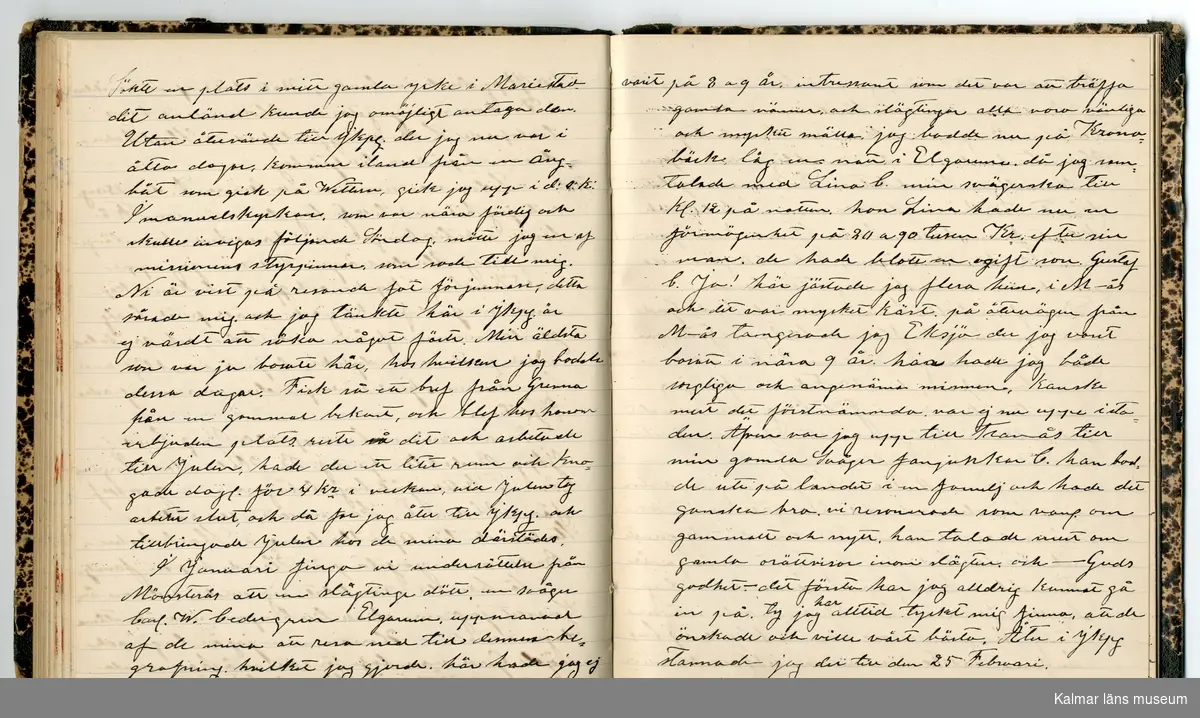 Sökte en plats i mitt gamla yrke i Mariestad.
det anländ kunde jag omöjligt antaga den
Utan återvände till Jkpg. der jag nu var i
åtta dagar, kommen iland från en Ång-
båt som gick på Wettern, gick jag upp i d. s. k.
Imanuelskyrkan, som var nära färdig och
skulle invigas följande Söndag, mötte jag en af
missionens styresmän, som sade till mig.
Ni är visst på resande fot förjemnan, detta
sårade mig och jag tänkte här i Jkpg är
ej värdt att söka något fäste. Min äldsta
son var ju bosatt här, hos hvilken jag bodde
dessa dagar. Fick så ett bref från Grenna
från en gammal bekant, och blef hos honom
erbjuden plats reste så dit och arbetade
till Julen, hade der ett litet rum och kno-
gade dagl. för 4 kr i veckan, vid Julen tog
arbetet slut och då for jag åter till Jkpg. och
tillbringade Julen hos de mina därstädes.
I Januari fingo vi underrättelse från
Mönsterås att en slägtinge dött, en svåger
Carl W. Cedergren Elgerum, uppmanad
af de mina att resa ned till dennes be-
grafning hvilket jag gjorde. här hade jag ej
varit på 8 a 9 år. intressant som det var att träffa
gamla vänner och slägtingar alla voro vänliga
och mycket måna jag bodde nu på Krono-
bäck. låg en natt i Elgerum. då jag sam-
talade med Lina C. min svägerska till
kl. 12 på natten. hon Lina hade nu en
förmögenhet på 80 a 90 tusen Kr. efter sin
man. de hade blott en ogift son. Gustaf
C. Ja! här gästade jag flera hem, i M-ås
och det var mycket kärt. på återvägen från
M-ås tangerade jag Eksjö der jag varit
bosatt i nära 9 år. här hade jag både
sorgliga och angenäma minnen, kanske
mest det förstnämnda. var ej nu uppe i sta-
den. Äfven var jag upp till Tranås till
min gamla Svåger fanjunkar C. han bod-
de ute på landet i en familj och hade det
ganska bra. vi resonerade som vanl. om
gammalt och nytt, han talade mest om
gamla orättvisor inom slägten. och — Guds
godhet — det första har jag alldrig kunnat gå
in på. ty jag har alltid tyckt mig finna, att de
önskade och ville vårt bästa. Åter i Jkpg
stannade jag der till den 25 Februari.
Kalmar läns museum